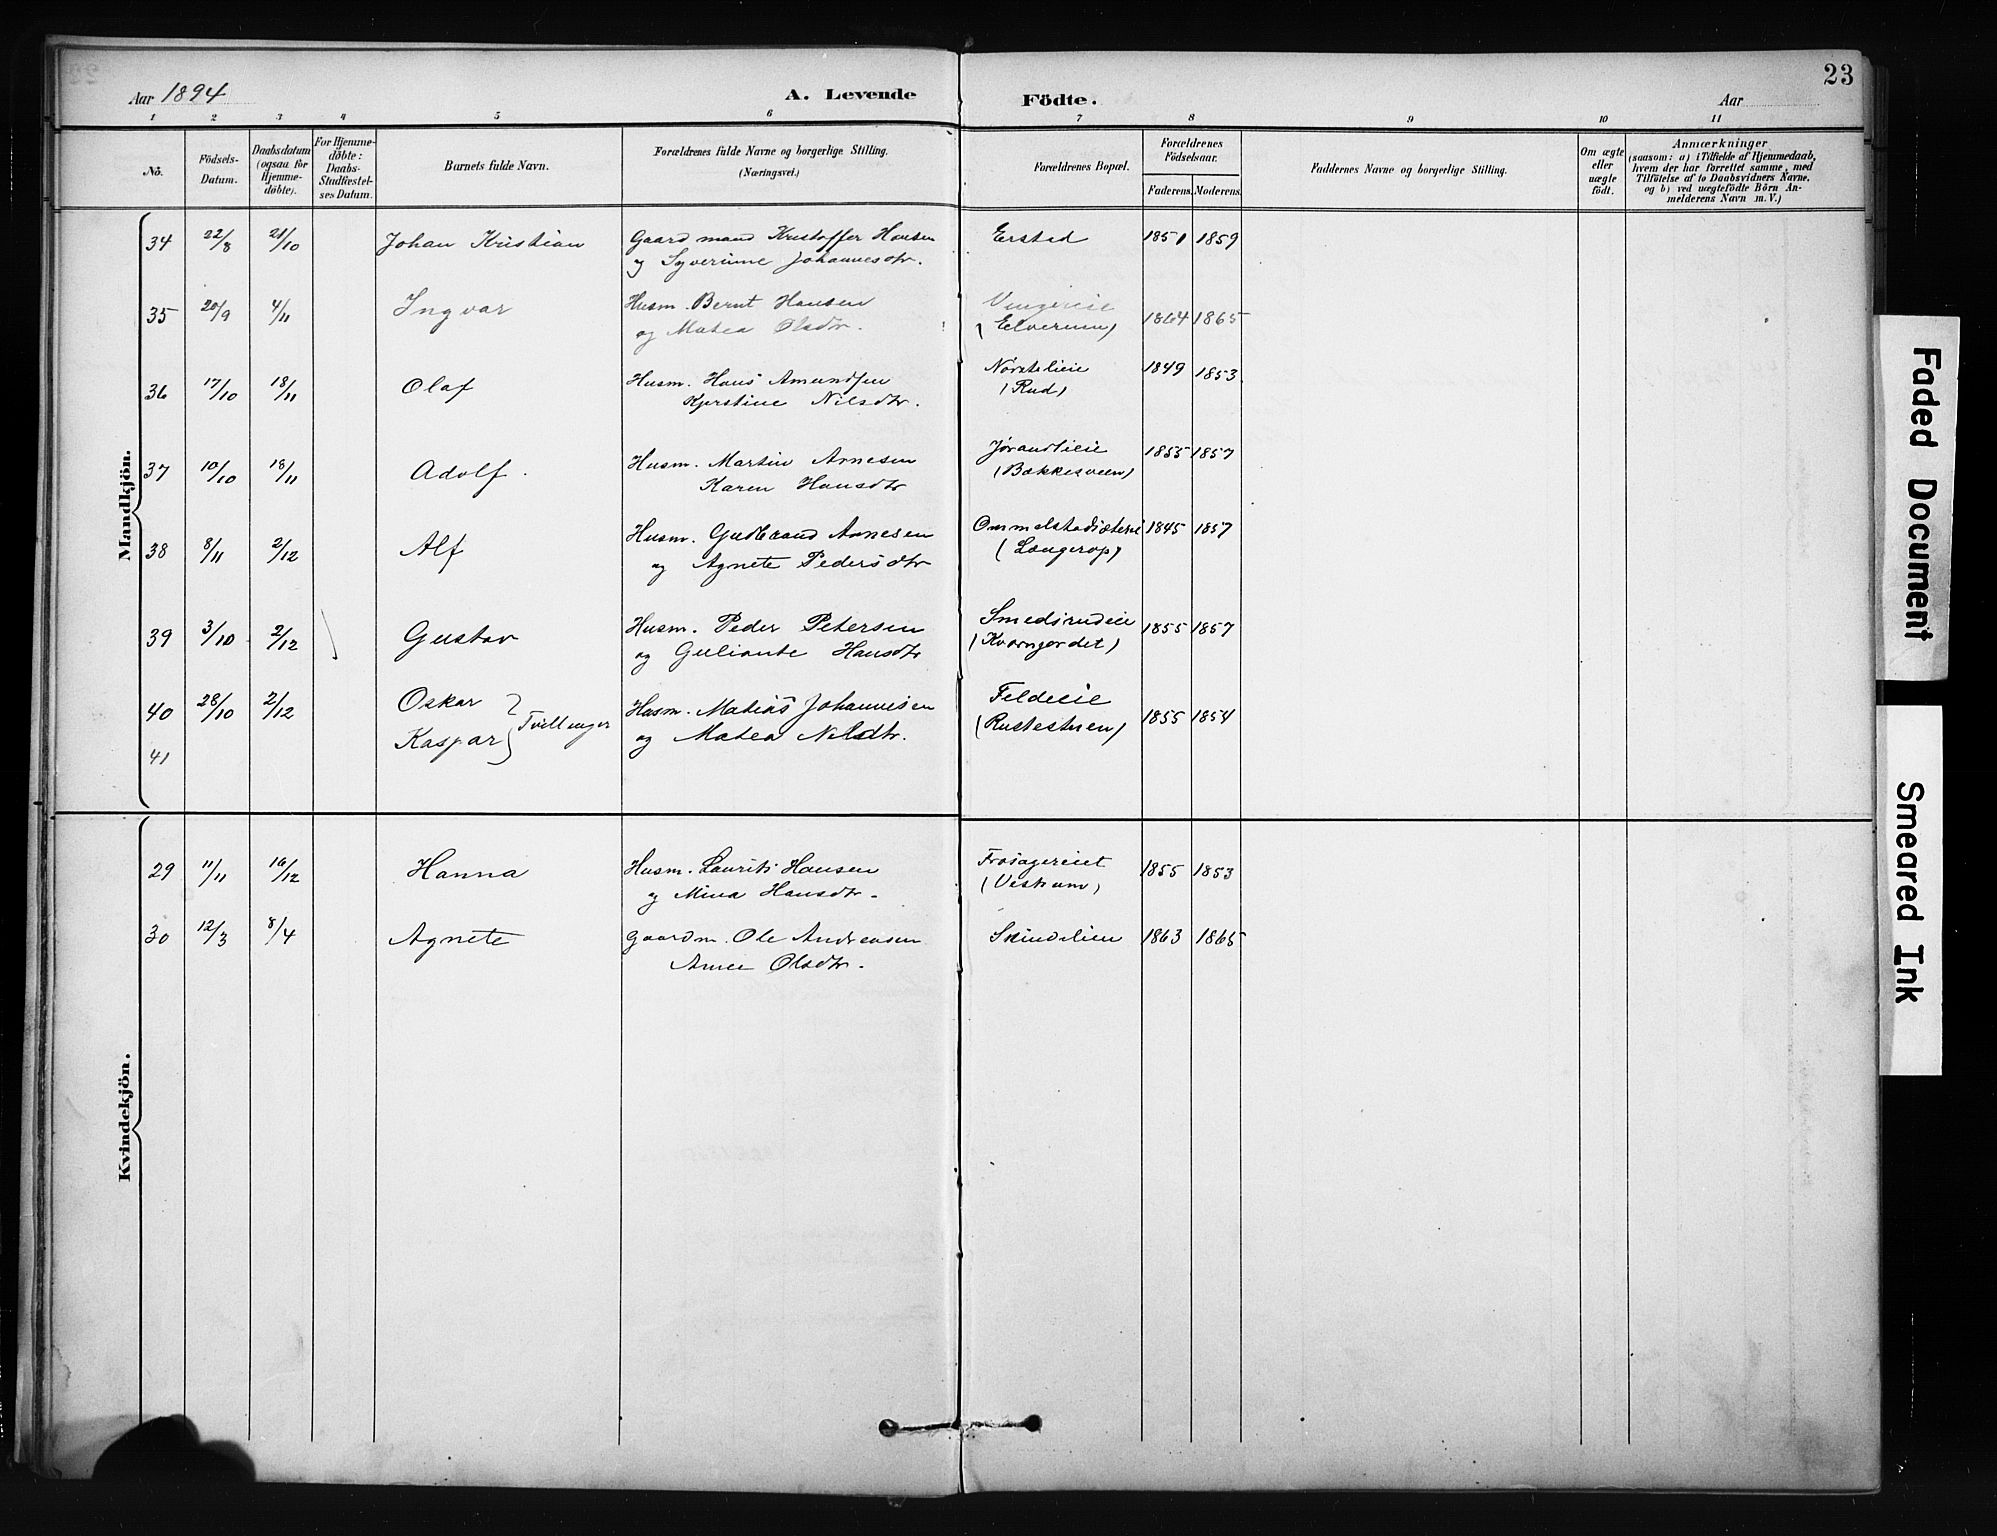 23
Aar 1894 A. Levende Födte. Aar
1 2 3 4 5 6 7 8 9 10 11
No.
Födsels-Datum.
Daabsdatum (ogsaa for Hjemme-døbte).
For Hjemme-døbte: Daabs-Stadfæstel-ses Datum.
Barnets fulde Navn.
Forældrenes fulde Navne og borgerlige Stilling.
(Næringsvei.)
Forældrenes Bopæl.
Forældrenes Födselsaar.
Faderens. Moderens.
Faddernes Navne og borgerlige Stilling.
Om ægte eller uægte födt.
Anmærkninger
(saasom: a) i Tilfælde af Hjemmedaab,
hvem der har forrettet samme, med
Tilföielse af to Daabsvidners Navne,
og b) ved uægtefödte Börn An-
melderens Navn m. V.)
Mandkjön.
34 22/8 21/10 Johan Kristian Gaardmand Kristoffer Hansen Erstad 1851 1859
og Syverine Johannesdtr.
35 20/9 4/11 Ingvar Husm. Bernt Hansen
og Matea Olsdtr. (Elverum) 1864 1865
36 17/10 18/11 Olaf Husm. Hans Amundsen Nørstelieie 1849 1853
Kjerstine Nilsdtr. (Rud)
37 10/10 18/11 Adolf. Husm. Martin Arnesen Jørandlieie 1855 1857
Karen Hansdtr (Bækkesveen)
38 8/11 2/12 Alf Husm. Gudbrand Arnesen 1845 1857
og Agnete Pedersdtr (Langerop)
39 3/10 2/12 Gustav Husm. Peder Petersen Smedsrudeie 1855 1857
og Guliante Hansdtr (Kværngerdet)
40 28/10 2/12 Oskar Husm. Matias Johannesen Feldeie 1855 1854
41 Kaspar } Tvillinger og Matea Nilsdtr. (Rustestuen)
Kvindekjön.
29 11/11 16/12 Hanna Husm. Laurits Hansen Frøsagereiet 1855 1853
og Mina Hansdtr. (Vestrum)
30 12/3 8/4 Agnete Gaardm. Ole Andreasen Skindelien 1863 1865
Anne Olsdtr.
Faded Document
Smeared Ink